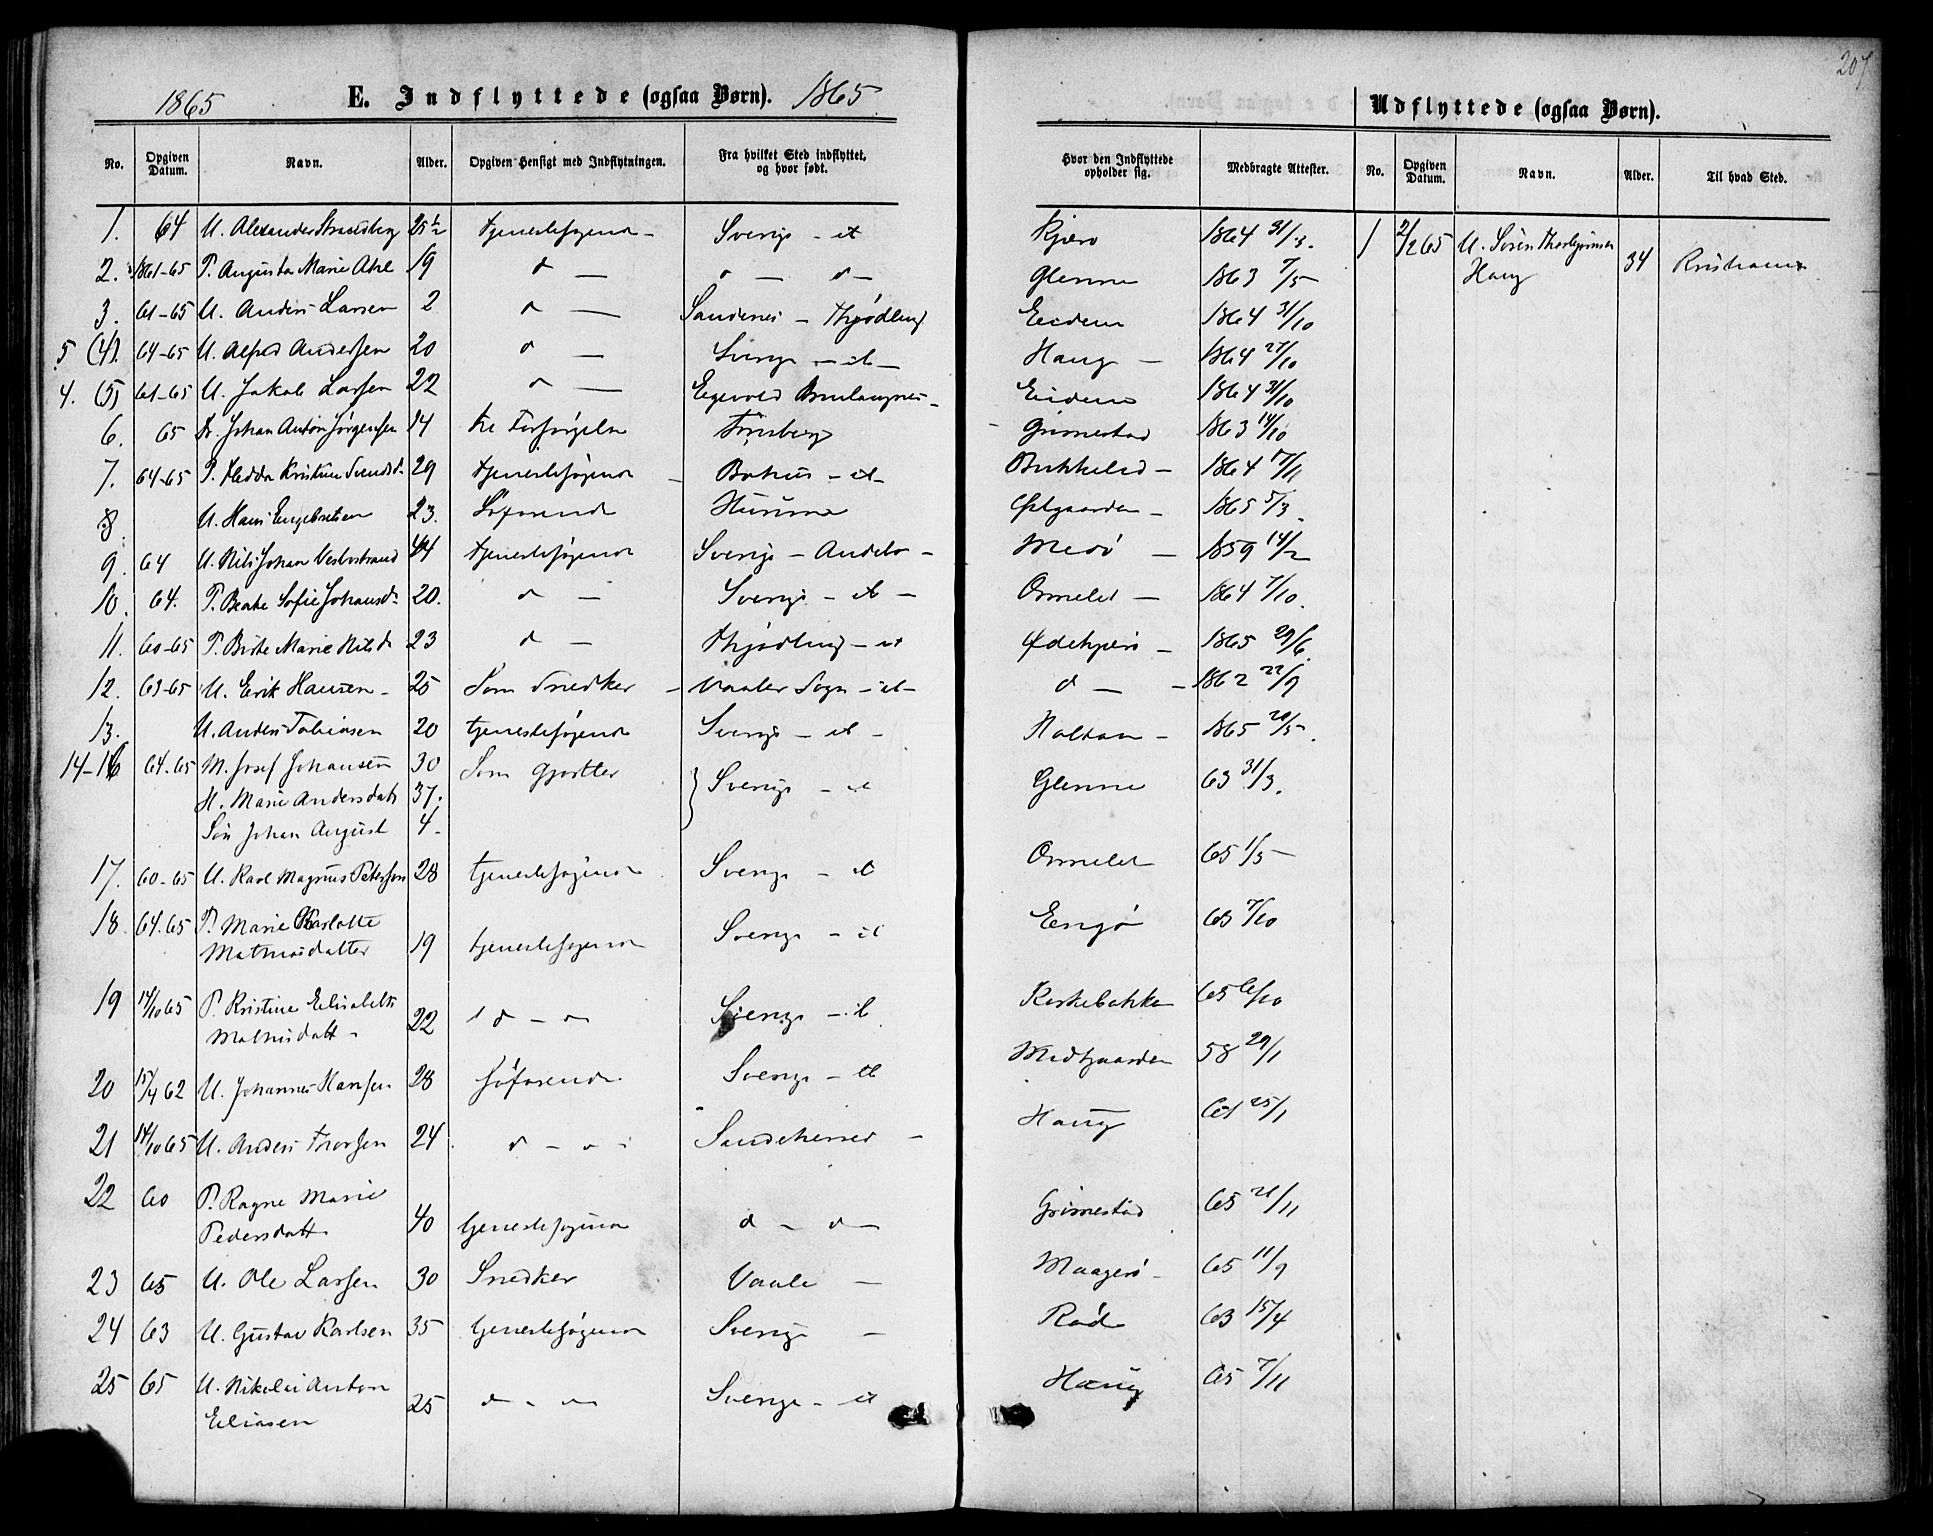 207
1865 E. Indflyttede (ogsaa Børn). 1865
Udflyttede (ogsaa Børn).
No. Opgiven Datum. Navn. Alder. Opgiven Hensigt med Indflytningen. Fra hvilket Sted indflyttet, og hvor født. Hvor den Indflyttede opholder sig. Medbragte Attester. No. Opgiven Datum. Navn. Alder. Til hvad Sted.
1. 64 U. Alexander Strandberg 25 1/2 tjenestesøgende - Sverige - et Kjærø 1864 31/3. 1 2/2 65 U. Søren Thorbjørnsen
Haug 34
2. 1861-65 P. Augusta Marie Ahl 19 d — d — d — Glenne 1863 7/5
3. 61-65 U. Anders Larsen 2 d — Sandenes - Thjødling Eidene 1864 31/10
5 (4). 64-65 U. Alfred Andersen 20 d — Sverige - et - Haug - 1864 27/10
4. (5) 61-65 U. Jakob Larsen 22 d — Eidene 1864 31/10
6. 65 Dr. Johan Anton Jørgensen 14 til Forsørgelse Tønsberg Grimestad 1863 14/10
7. 64-65 P. Hedda Kristine Svendsd. 29 tjenestesøgende - Bohus - et - Bukkelid - 1864 17/11
8 U. Hans Engebretsen 23. Søfarende Hurum Østgaarden - 1865 5/3
9. 64 U. Nils Johan Vesterstrand 44 tjenestesøgende Sverige - - Medø - 1859 14/2
10. 64. P. Beate Sofie Johansd. 20. d — Sverige - et - Ormelet - 1864 7/10.
11. 60-65 P. Birte Marie Nilsd. 23 d — Thjødling - et Ødekjære - 1865 29/6.
12. 63-65 U. Erik Hansen - 25 Som Snedker - Vaaler Sogn - et - d — 1862 22/9
13. U. Anders Tobiasen 20 tjenestesøgende Sverige - et - Holtan - 1865 20/5.
14-16 64-65 M. Josef Johansen 30 Som Gjørtler } Sverige - et Glenne 63 31/3.
H. Marie Andersdatt 37.
Søn Johan August 4.
17. 60-65 U. Karl Magnus Petersson 28 tjenestesøgende Sverige - et Ormelet 65 1/5
18. 64-65 P. Marie Charlotte
Mathisdatter 19 tjenestesøgende Sverige - et Engø 63 7/10
19 14/10 65 P. Kristine Elisabeth
Mathisdatt - 22 d - d Sverige - et Kirkebakke 65 6/10
20 15/4 62 U. Johannes Hansen 28 Søfarende Sverige - et Midtgaarden 58 29/1
21 14/10 65 U. Anders Thorsen 24 d - d - Sandeherred - Haug 61 25/1
22 60 P. Ragne Marie
Pedersdatt. 40 tjenestesøgende d - d - Grimestad 65 21/11
23 65 U. Ole Larsen 30 Snedker Vaale - Maagerø - 65 11/9
24 63 U. Gustav Karlsen 35 tjenestesøgende Sverige - Rød 63 15/4
25 65 U. Nikolai Anton
Eliasen 25 d - d Sverige - et Haug 65 7/11